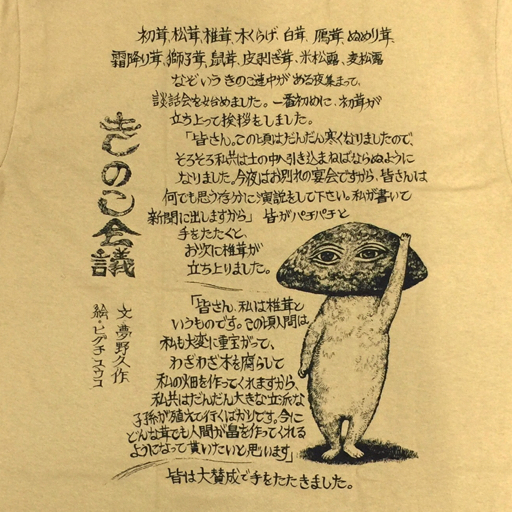 初茸、松茸、椎茸、木くらげ、白茸、鴈茸、ぬめり茸、
霜降り茸、獅子茸、鼠茸、皮剥ぎ茸、米松露、麦松露
なぞいうきのこ連中がある夜集まって、
談話会を始めました。一番初めに、初茸が
立ち上って挨拶をしました。
「皆さん。この頃はだんだん寒くなりましたので、
そろそろ私共は土の中へ引き込まねばならぬように
なりました。今夜はお別れの宴会ですから、皆さんは
何でも思う存分に演説をして下さい。私が書いて
新聞に出しますから」皆がパチパチと
手をたたくと、
お次に椎茸が
立ち上りました。
「皆さん、私は椎茸と
いうものです。この頃人間は
私を大変に重宝がって、
わざわざ木を腐らして
私の畑を作ってくれますから、
私共はだんだん大きな立派な
子孫が殖えて行くばかりです。今に
どんな茸でも人間が畠を作ってくれる
ようになって貰いたいと思います」
皆は大賛成で手をたたきました。
きのこ会議
文 夢野久作
絵・ヒグチユウコ